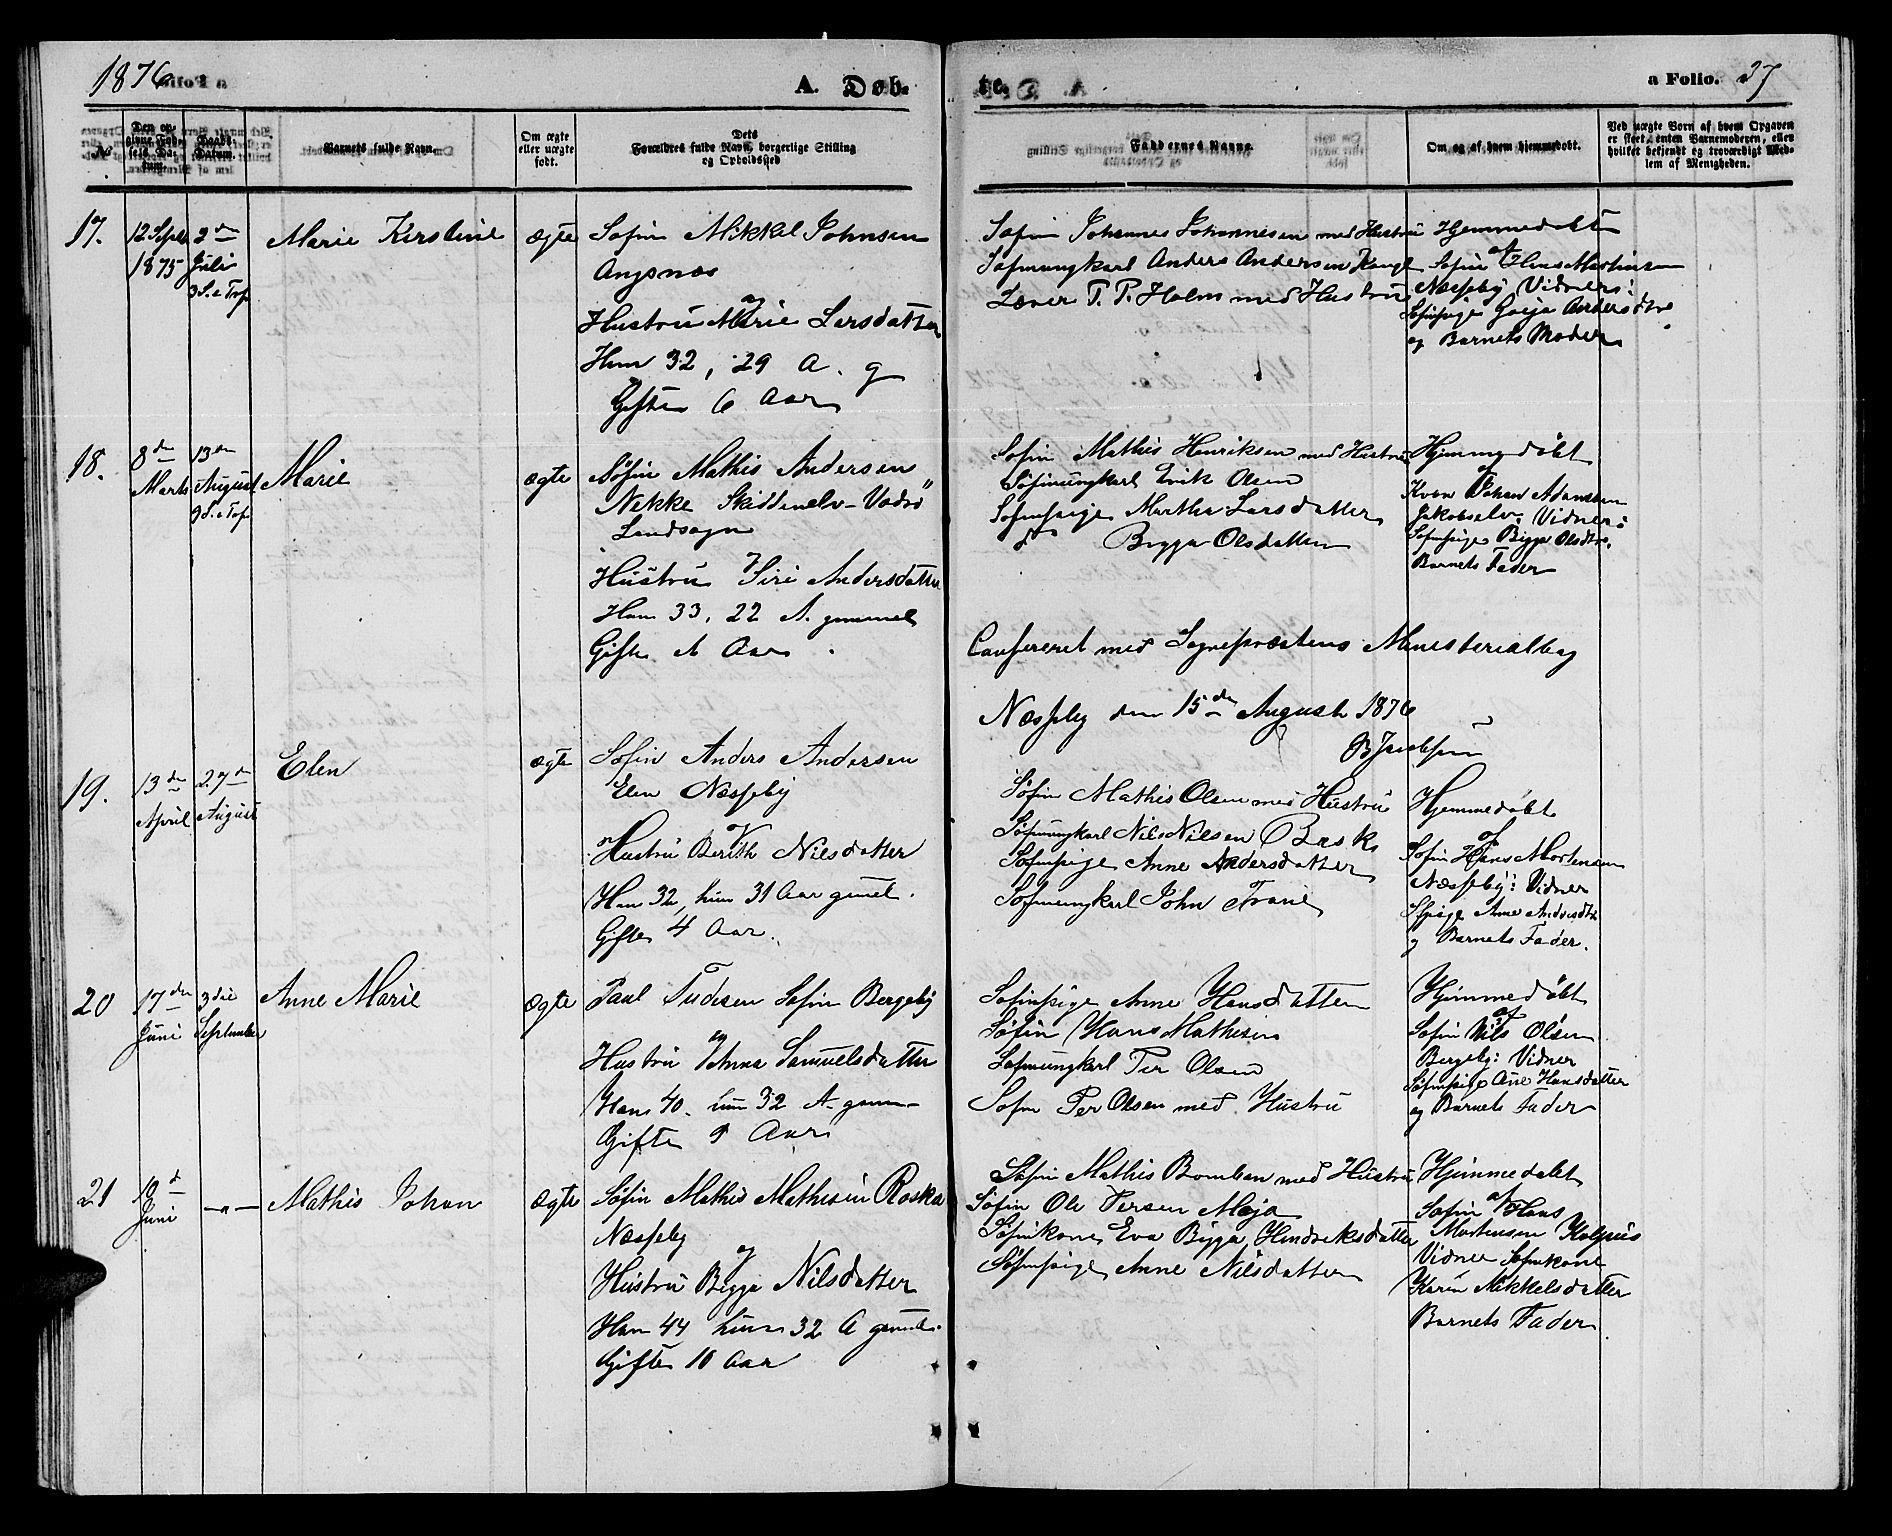 1876
A. Døb-
te.
a Folio. 37
No
Den opgivne Fødsels Datum.
Daabs Datum.
Barnets fulde Navn.
Om ægte eller uægte født.
Dets Forældres fulde Navn, borgerlige Stilling og Opholdssted
Faddernes Navne.
Om og af hvem hjemmedøbt.
Ved uægte Børn af hvem Opgaven er skeet, enten Barnemoderen, eller hvilket bekjendt og troværdigt Medlem af Menigheden.
17.
12 Septr
1875
2den
Juli
3 S. e Tref
Marie Kirstine
ægte
Søfin Mikkel Johnsen
Angsnæs
og
Hustru Marie Larsdatter
Han 32, 29 A. g
Gifte 6 Aar
Søfin Johannes Johannesen med Hustru
Søfinungkarl Anders Andersen
Lærer P. P. Holm med Hustru
Hjemmedøbt
af
Søfin Hans Mortensen
Næsseby Vidner:
Søfinpige Andersdtr
og Barnets Moder
18.
8de
Marts
13de
August
9 S. e Tref
Marie
ægte
Søfin Mathis Andersen
Nekke Skittenelv - Vadsø
Landsogn
Hustru Siri Andersdatter
Han 33, 22 A. gammel
Gifte 1 Aar
Søfin Mathis Henriksen med Hustru
Søfinungkarl Erik Olsen
Søfinpige Martha Larsdatter
do Bigga Olsdatter
Hjemmedøbt
af
Kvæn Johan Adamsen
Jakobselv. Vidner:
Søfinpige Bigga Olsdtr.
Barnets Fader
Confereret med Sognepræstens Ministerialbog
Næsseby den 15de August 1876
B Jacobsen
19.
13de
April
27de
August
Elen
ægte
Søfin Anders Andersen
Elen Næsseby
og
Hustru Berith Nilsdatter
Han 32, hun 31 Aar gamel.
Gifte 4 Aar.
Søfin Mathis Olsen med Hustru
Søfinungkarl Nils Nilsen Bask
Søfinpige Anne Andersdatter
Søfinungkarl John Trane
Hjemmedøbt
af
Søfin Hans Mortensen
Næsseby: Vidner
Sfpige Anne Andersdtr
og Barnets Fader.
20
17de
Juni
3die
September
Anne Marie
ægte
Paul Tudesen Søfin Bergeby
og
Hustru Anna Samuelsdatter
Han 40. hun 32 A. gam-
Gifte 9 Aar
Søfinpige Anne Hansdatter
Søfin Hans Mathisen
Søfinungkarl Per Olsen
Søfin Per Olsen med Hustru
Hjemmedøbt
af
Søfin Nils Olsen
Bergeby: Vidner
Søfinpige Ane Hansdatter
og Barnets Fader
21
10d
Juni
—„—
Mathis Johan
ægte
Søfin Mathis Mathisen Roska
Næsseby
og
Hustru Bigga Nilsdatter
Han 44 hun 32 A gamle.
Gifte 10 Aar
Søfin Mathis Bomban med Hustru
Søfin Ole Persen Moja
Søfinkone Eva Bigga Hendriksdatter
Søfinpige Anne Nilsdatter
Hjemmedøbt
af
Søfin Hans
Mortensen Kolpus
Vidner Søfinkone
Karin Mikkelsdatter
Barnets Fader